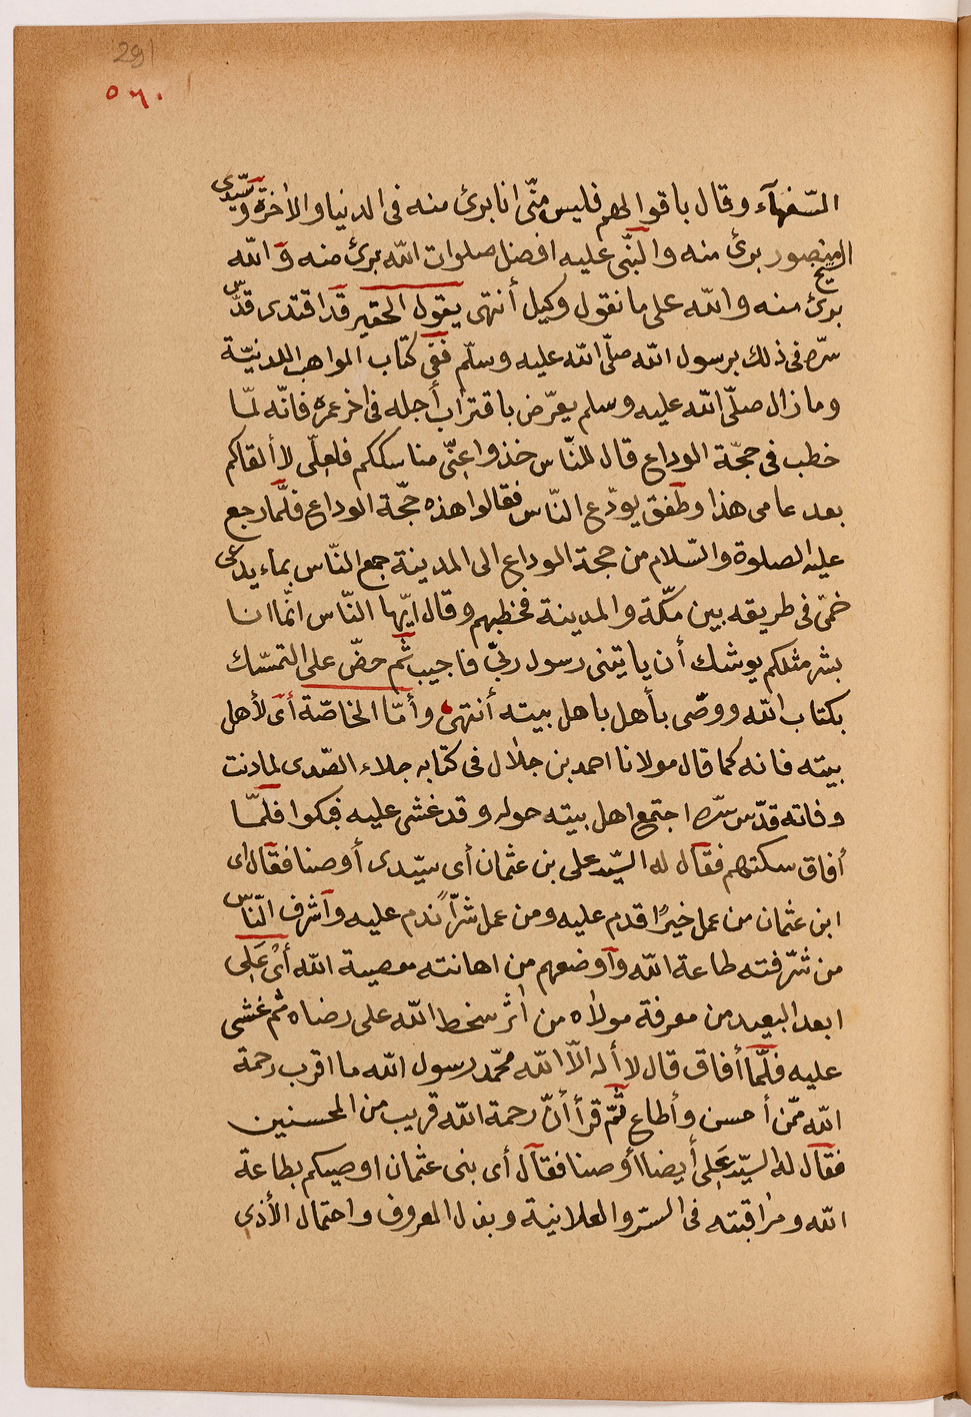 291
٥٦٠
السّفهآء وقال باقوالهم فليس منّى انا برئ منه فى الدنيا والاخرة وسيّدى
الشيخ المنصور برئ منه والنّبى عليه افضل صلوات الله برئ منه والله
برئ منه والله على ما نقول وكيل أنتهى يقول الحقير قد اقتدى قدّس
سرّه فى ذلك برسول الله صلّى الله عليه وسلّم ففى كتاب المواهب اللدنيّة
وما زال صلّى الله عليه وسلم يعرّض باقتراب أجله فى اخر عمره فانّه لمّا
خطب فى حجّة الوداع قال للنّاس خذوا عنّى مناسككم فلعلّى لا ألقاكم
بعد عامى هذا وطفق يودّع النّاس فقالوا هذه حجّة الوداع فلمّا رجع
عليه الصلوة والسّلام من حجة الوداع الى المدينة جمع النّاس بماء يدعى
خمّى فى طريقه بين مكّة والمدينة فخطبهم وقال ايّها النّاس انّما انا
بشر مثلكم يوشك أن ياتينى رسول ربّى فاجيب ثم حضّ على التمسّك
بكتاب الله ووصّى بأهل باهل بيته أنتهى وأمّا الخاصّة أى لأهل
بيته فانه كما قال مولانا احمد بن جلال فى كتابه جلاء الصّدى لما دنت
وفاته قدّس سرّه اجتمع اهل بيته حوله وقد غشى عليه فبكوا فلمّا
أفاق سكتهم فقال له السيّد على بن عثمان أى سيّدى أوصنا فقال اى
ابن عثمان من عمل خيرًا قدم عليه ومن عمل شرّاً ندم عليه وأشرف النّاس
من شرّفته طاعة الله وأوضعهم من اهانته معصية الله أى على
ابعد البعيد من معرفة مولاه من أثر سخط الله على رضاه ثم غشى
عليه فلمّا أفاق قال لا أله الاّ الله محمّد رسول الله ما اقرب رحمة
الله ممّن أحسن وأطاع ثمّ قرأ أنّ رحمة الله قريب من المحسنين
فقال له السيّد على أيضا أوصنا فقال أى بنى عثمان اوصيكم بطاعة
الله ومراقبته فى السرّ والعلانية وبذل المعروف واحتمال الأذى